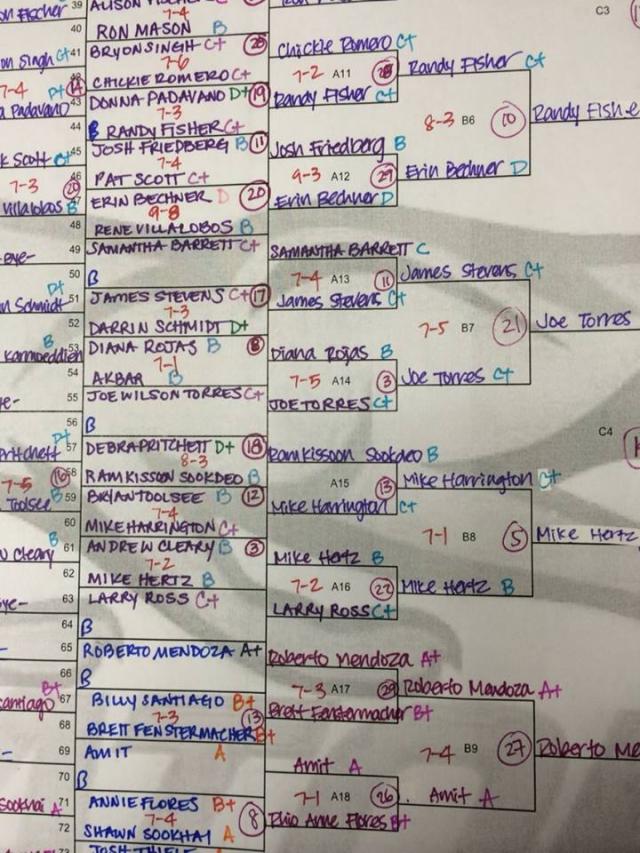 39 ALISON
on Fischer 7-4
40
RON MASON B
on Singh C+ 41 BRYON SINGH C+ 20 Chickie Romero C+
7-6
7-4 D+ 14 CHICKIE ROMERO C+ 7-2 A11 28 Randy Fisher C+
a Padavano 43 DONNA PADAVANO D+ 19 Randy Fisher C+
7-3 8-3 B6 10 Randy Fishe
44 B RANDY FISHER C+
k Scott C+ 45 JOSH FRIEDBERG B 11 Josh Friedberg B
7-4
46 PAT SCOTT C+ 9-3 A12 29 Erin Bechner D
7-3 20
Villalobos B 47 ERIN BECHNER D 20 Erin Bechner D
9-8
48 RENE VILLALOBOS B
-Bye- 49 SAMANTHA BARRETT C+ SAMANTHA BARRETT C
50 B 7-4 A13 11 James Stevens C+
D+
n Schmidt 51 JAMES STEVENS C+ 17 James Stevens C+
7-3 7-5 B7 21 Joe Torres
52 DARRIN SCHMIDT D+
B
Karmoeddien 53 DIANA ROJAS B 8 Diana Rojas B
7-1
54 AKBAR B 7-5 A14 3 Joe Torres C+
ye- 55 JOE WILSON TORRES C+ JOE TORRES C+
56 B C4
D+
Pritchett 57 DEBRA PRITCHETT D+ 18 Ramkissoon Sookdeo B
8-3
7-5 16 58 RAMKISSOON SOOKDEO B A15 13 Mike Harrington C+
Toolsee B 59 BRYAN TOOLSEE B 12 Mike Harrington C+
7-4
60 MIKE HARRINGTON C+ 7-1 B8 5 Mike Hertz
B
w Cleary 61 ANDREW CLEARY B 3 Mike Hertz B
7-2
62 MIKE HERTZ B 7-2 A16 22 Mike Hertz B
Bye- 63 LARRY ROSS C+ LARRY ROSS C+
64 B
65 ROBERTO MENDOZA A+ Roberto Mendoza A+
66 B 7-3 A17 Roberto Mendoza A+
B+
Santiago 67 BILLY SANTIAGO B+ Brett Fenstermacher B+
7-3 13
68 BRETT FENSTERMACHER B+ 7-4 B9 27 Roberto Me
69 AMIT A Amit A
70 B 7-1 A18 26 Amit A
Sookhai A 71 ANNIE FLORES B+ Anne Flores B+
7-4 8
72 SHAWN SOOKHAI A
73 JOSH THIELE
C3